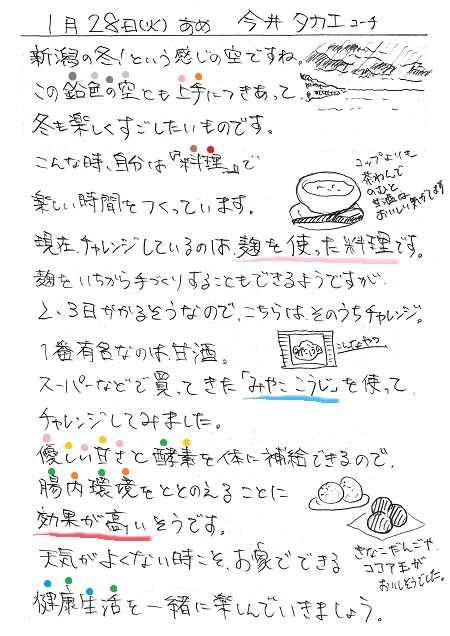 1月28日(火) あめ 今井 タカエ コーチ
新潟の冬!という感じの空ですね。
この鉛色の空とも上手につきあって、
冬も楽しくすごしたいものです。
こんな時、自分は『料理』で
楽しい時間をつくっています。
コップよりも
茶わんで
のむと
甘酒は
おいしい気がします
現在、チャレンジしているのは、麹を使った料理です。
麹をいちから手づくりすることもできるようですが、
2、3日かかるそうなので、こちらは、そのうちチャレンジ。
1番有名なのは甘酒。
みやこ
こんなやつ
スーパーなどで買ってきた「みやここうじ」を使って
チャレンジしてみました。
優しい甘さと酵素を体に補給できるので、
腸内環境をととのえることに
効果が高いそうです。
きなこだんごや、
ココア玉が
おいしそうでした。
天気がよくない時こそ、お家でできる
健康生活を一緒に楽しんでいきましょう。